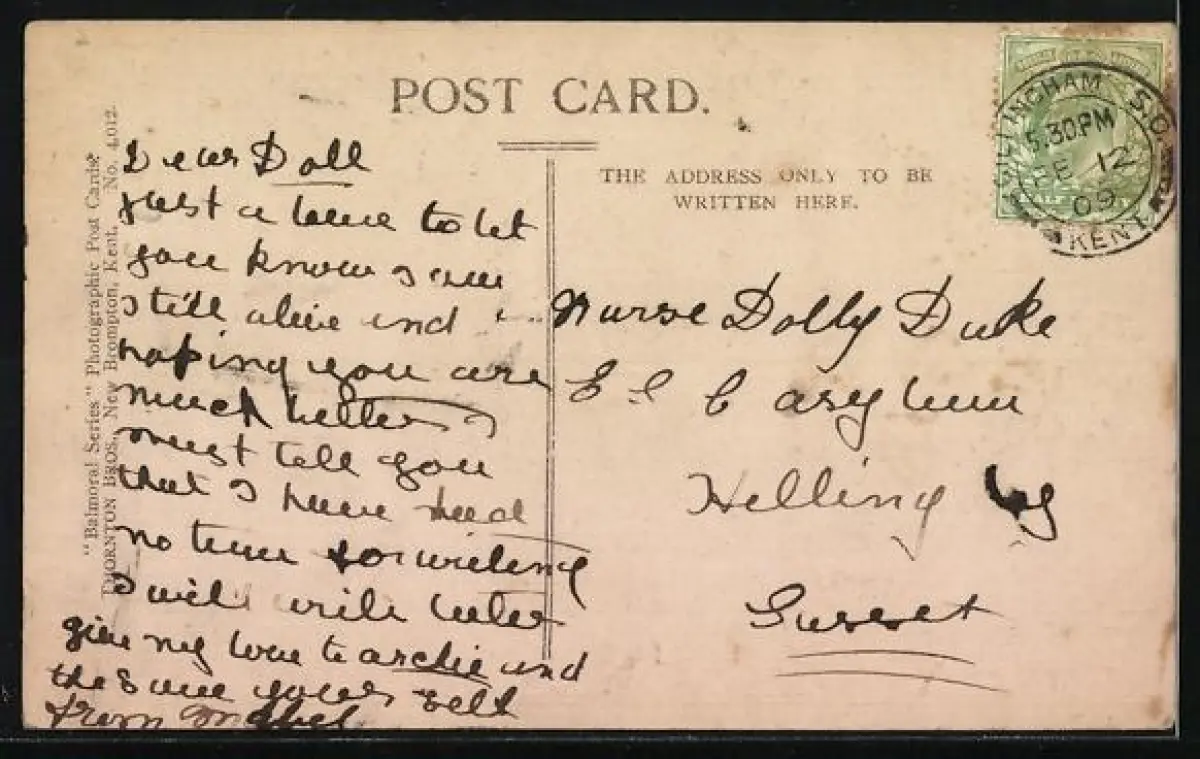 POST CARD.
THE ADDRESS ONLY TO BE
WRITTEN HERE.
GILLINGHAM S.O.
5.30PM
FE 12
09
KENT
"Balmoral Series" Photographic Post Cards.
THORNTON BROS., New Brompton, Kent. No. 4,012.
Dear Doll
just a line to let
you know I am
still alive and
hoping you are
much better I
must tell you
that I have had
no time for writing
I will write later
give my love to archie and
the same yours elf
from Mabel
Nurse Dolly Duke
E C asylum
Helling ly
Sussex